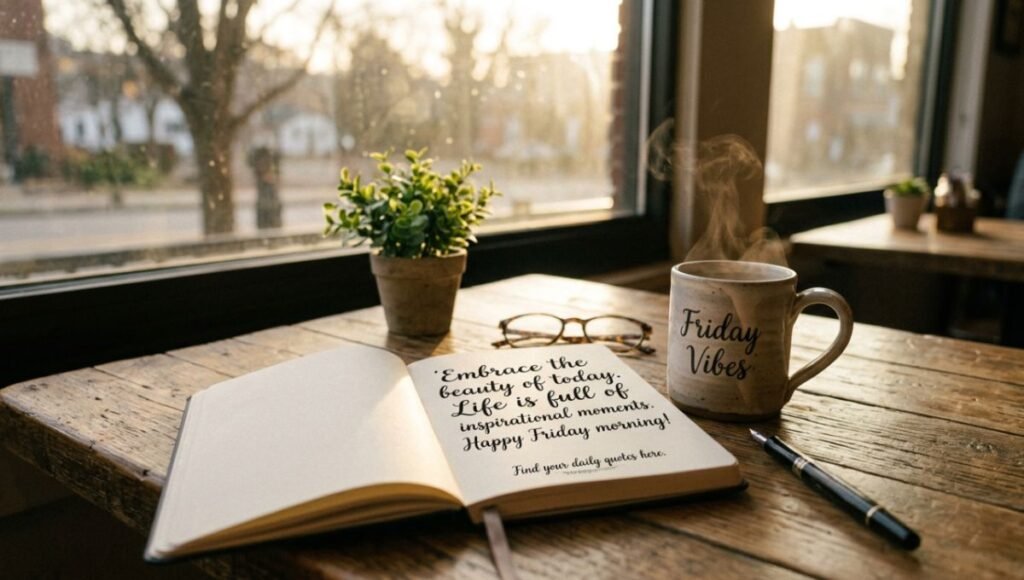 'Embrace the
beauty of today.
Life is full of
inspirational moments.
Happy Friday morning!
Find your daily quotes here.
Friday
Vibes